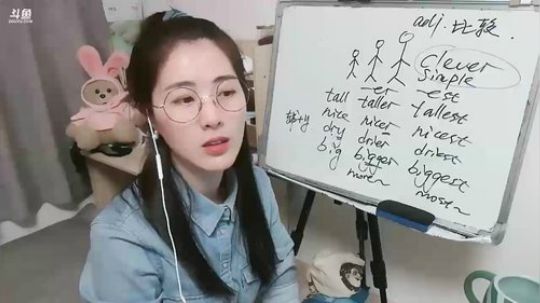 斗鱼
adj. 比较.
clever
simple
-er -est
tall taller tallest
nice nicer nicest
辅+y dry drier driest
big bigger biggest
more~ most~